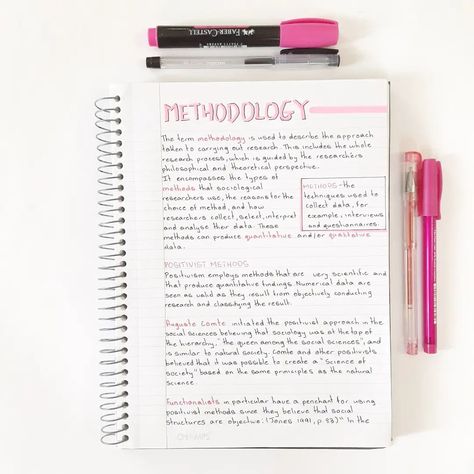 FABER-CASTELL
METHODOLOGY
The term methodology is used to describe the approach
taken to carrying out research. This includes the whole
research process, which is guided by the researchers
philosophical and theoretical perspective.
It encompasses the types of
methods that sociological
researchers use, the reasons for the
choice of method, and how
researchers collect, select, interpret
and analyse their data. These
methods can produce quantitative and/or qualitative
data.
METHODS - the
techniques used to
collect data, for
example, interviews
and questionnaires.
POSITIVIST METHODS
Positivism employs methods that are very scientific and
that produce quantitative findings. Numerical data are
seen as valid as they result from objectively conducting
research and classifying the result.
Auguste Comte initiated the positivist approach in the
social sciences believing that sociology was at the top of
the hierarchy, "the queen among the social sciences", and
is similar to natural society. Comte and other positivists
believed that it was possible to create a "science of
society" based on the same principles as the natural
science.
Functionalists in particular have a penchant for using
positivist methods since they believe that social
structures are objective: (Jones 1991, p 83)" In the